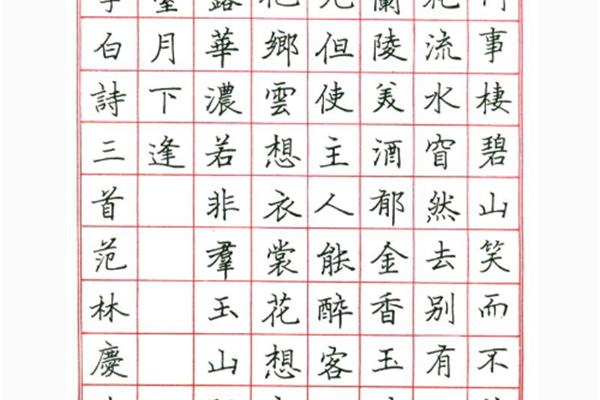 事棲碧山笑而不
花流水窅然去別有
蘭陵美酒郁金香玉
光但使主人能醉客
鄉雲想衣裳花想
露華濃若非羣玉山
臺月下逢
李白詩三首范林慶